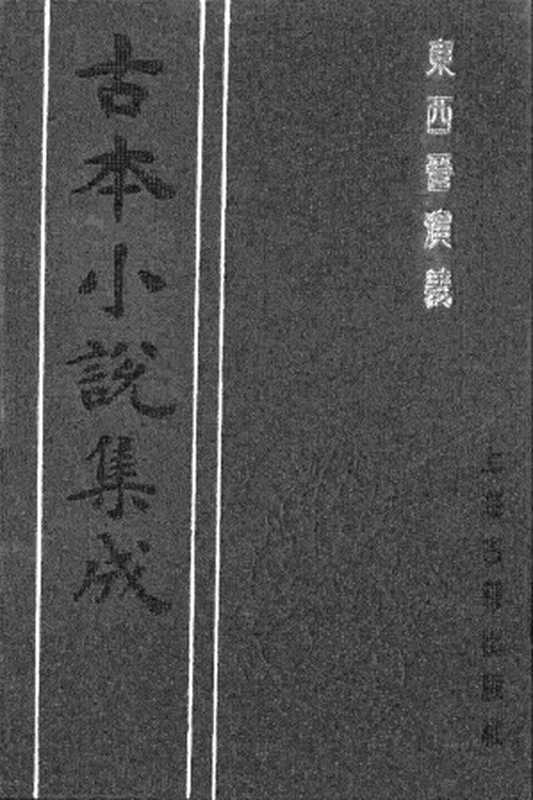 東西晉演義
上海古籍出版社
古本小說集成